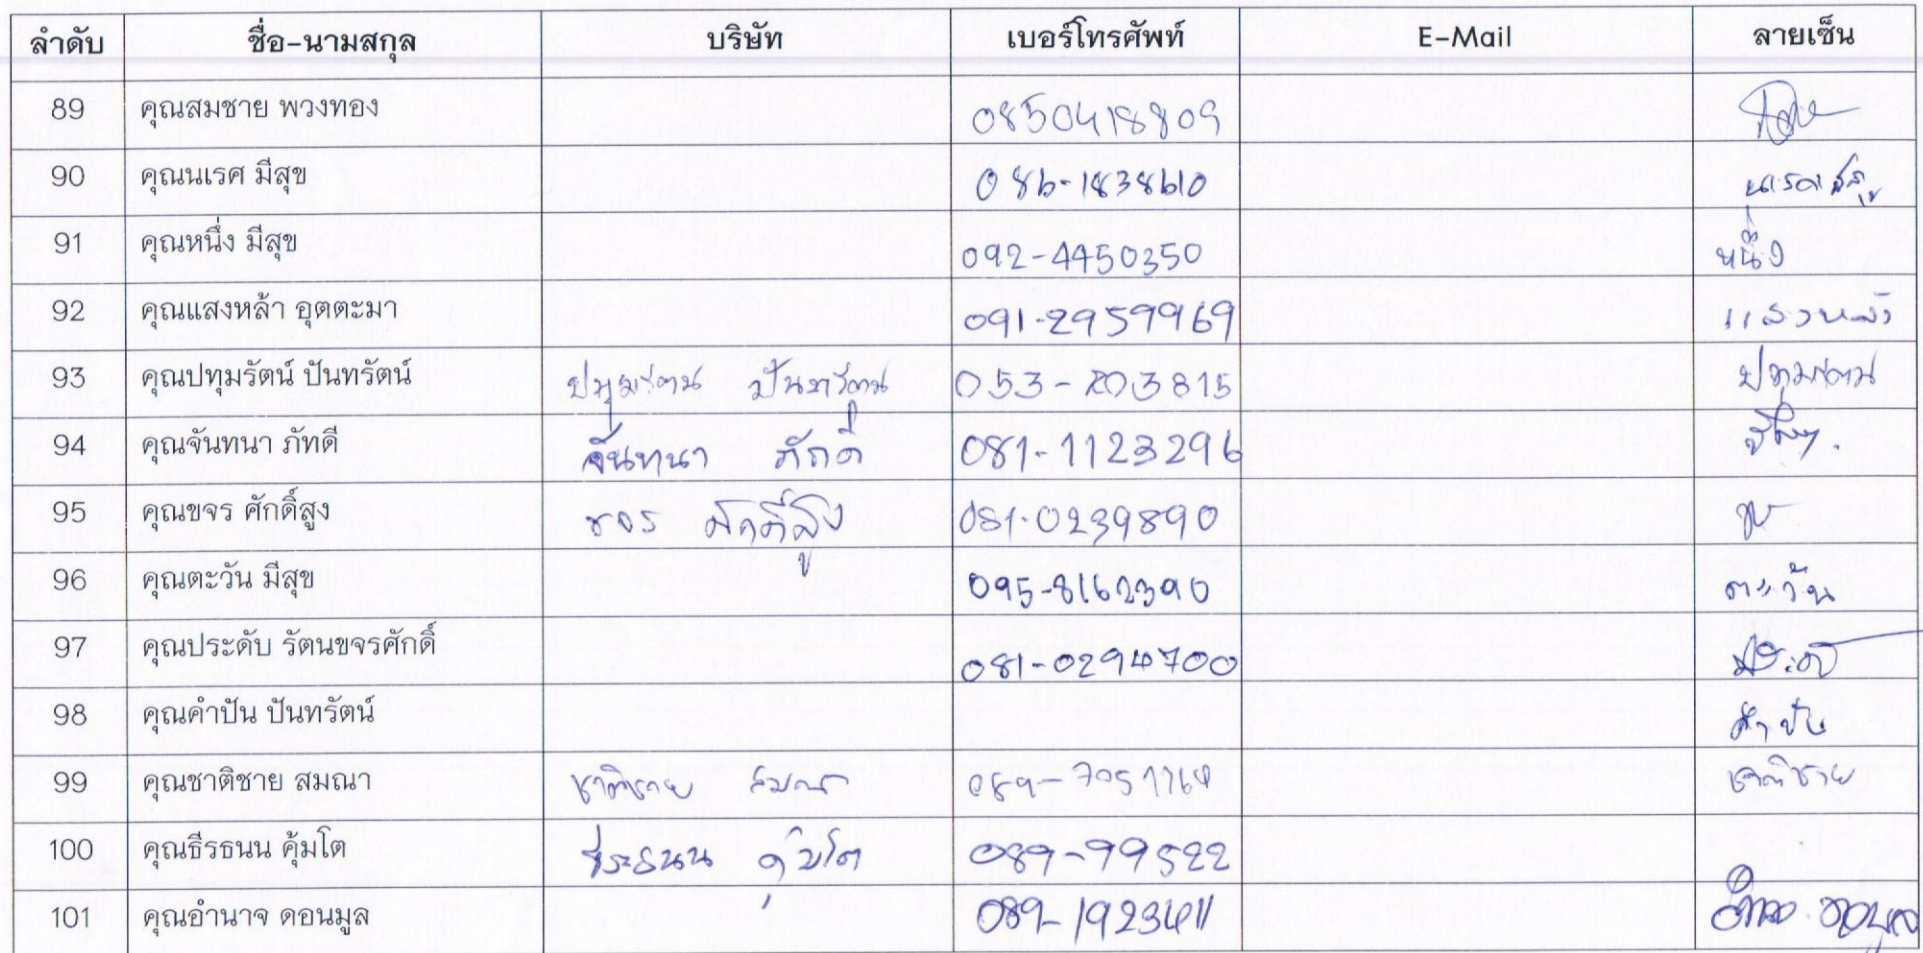 ลำดับ ชื่อ-นามสกุล บริษัท เบอร์โทรศัพท์ E-Mail ลายเซ็น
89 คุณสมชาย พวงทอง 0850418809
90 คุณนเรศ มีสุข 086-1838610
91 คุณหนึ่ง มีสุข 092-4450350 หนึ่ง
92 คุณแสงหล้า อุตตะมา 091-2959969 แสงหล้า
93 คุณปทุมรัตน์ ปันทรัตน์ ปทุมรัตน์ ปันทรัตน์ 053-203815 ปทุมรัตน์
94 คุณจันทนา ภัทดี จันทนา ภักดี 081-1123296
95 คุณขจร ศักดิ์สูง ขจร ศักดิ์สูง 081-0239890
96 คุณตะวัน มีสุข 095-8162390 ตะวัน
97 คุณประดับ รัตนขจรศักดิ์ 081-0294700 ประดับ
98 คุณคำปัน ปันทรัตน์ คำปัน
99 คุณชาติชาย สมณา ชาติชาย สมณา 089-7951164 ชาติชาย
100 คุณธีรธนน คุ้มโต ธีระธนน คุ้มโต 089-99522
101 คุณอำนาจ ดอนมูล 089-1923411